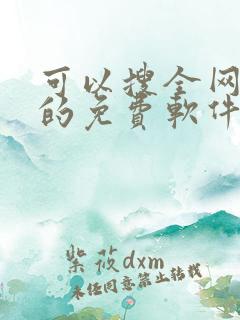 可以搜全网
的免費軟件
紫筱dxm
未经同意禁止转载